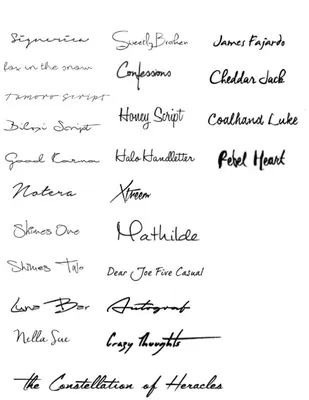 Signerica
SweetlyBroken
James Fajardo
fox in the snow
Confessions
Cheddar Jack
Tamoro Script
Honey Script
Coalhand Luke
Biloxi Script
Good Karma
Halo Handletter
Rebel Heart
Notera
Xtreem
Shines One
Mathilde
Shines Two
Dear Joe Five Casual
Luna Bar
Autograf
Nella Sue
Crazy Thoughts
the Constellation of Heracles